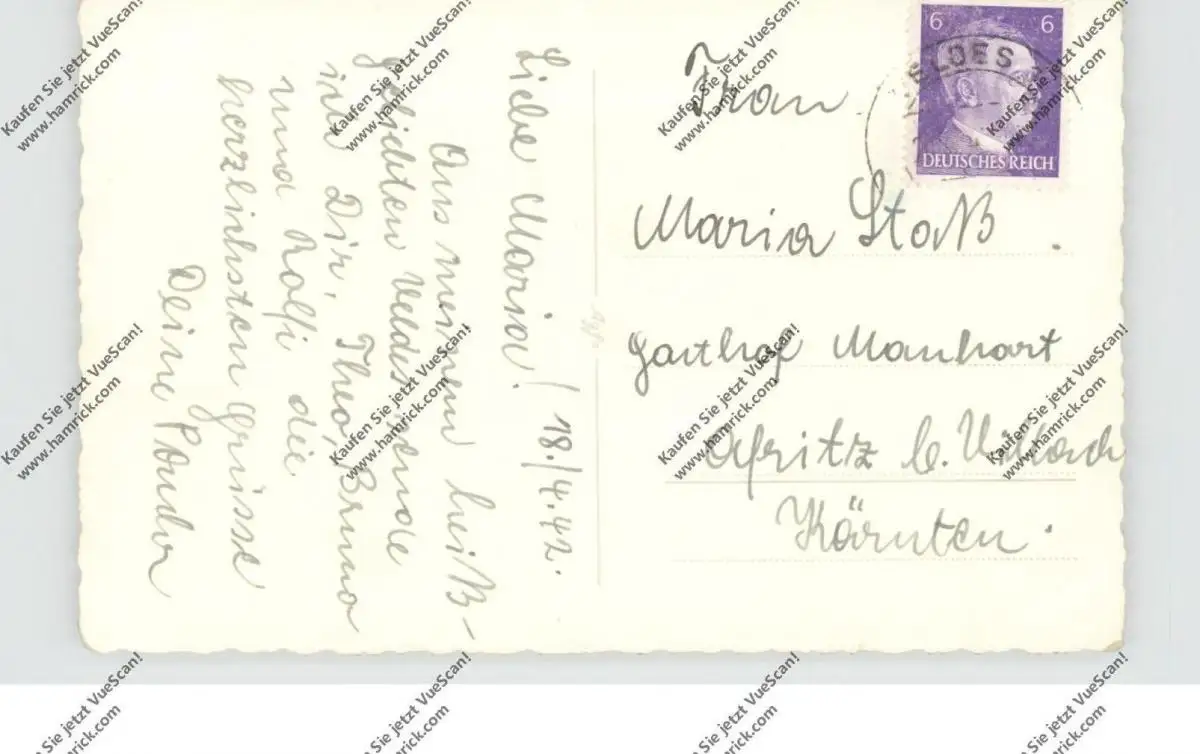 Liebe Maria! / 18./4.42.
Aus meinem heiß-
geliebten Veldes sende
ich Dir, Theo, Bruno
und Rolfi die
herzlichsten Grüsse
Deine
6 6
ELDES
DEUTSCHES REICH
Frau
Maria Stoß.
Gasthof Manhart
Afritz b. Villach
Kärnten.
Kaufen Sie jetzt VueScan!
www.hamrick.com
Kaufen Sie jetzt VueScan!
www.hamrick.com
Kaufen Sie jetzt VueScan!
www.hamrick.com
Kaufen Sie jetzt VueScan!
www.hamrick.com
Kaufen Sie jetzt VueScan!
www.hamrick.com
Kaufen Sie jetzt VueScan!
www.hamrick.com
Kaufen Sie jetzt VueScan!
www.hamrick.com
Kaufen Sie jetzt VueScan!
www.hamrick.com
Kaufen Sie jetzt VueScan!
mrick.com
Kaufen Sie jetzt VueScan!
mrick.com
Kaufen Sie jetzt VueScan!
mrick.com
Kaufen Sie jetzt VueScan!
mrick.com